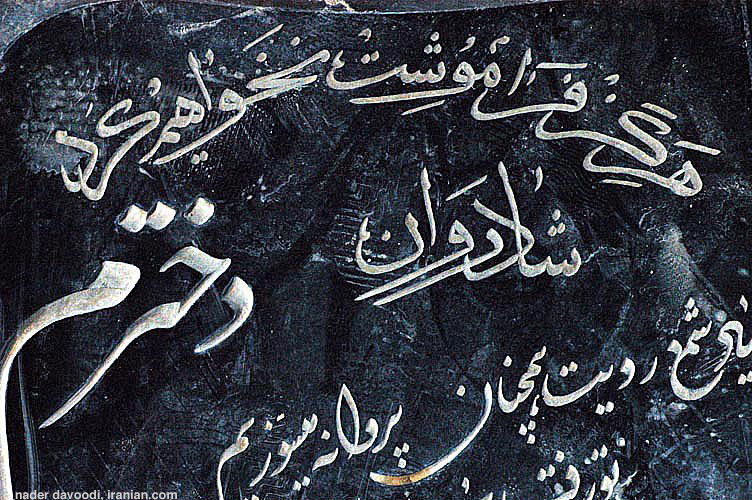 هرگز فراموشت نخواهم کرد
شادروان
دخترم
شمع رویت همچنان
پروانه میسوزیم
nader davoodi. iranian.com